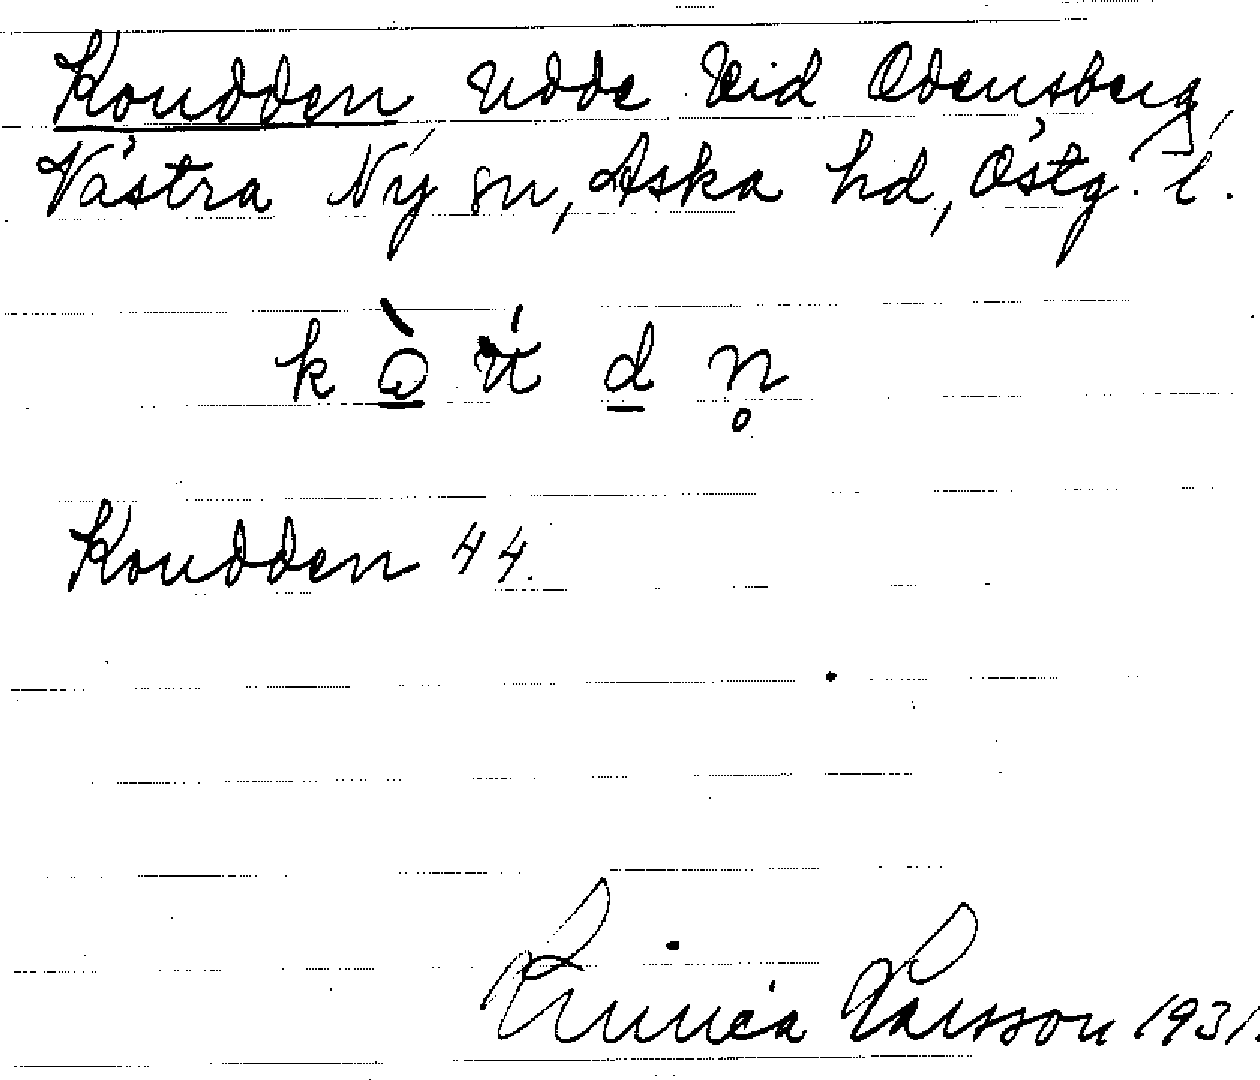 Koudden Udde Vid Odensberg,
Västra Ny sn, Aska hd, Östg. l.
k d n̥
Koudden 44.
Linnéa Larsson 1931.